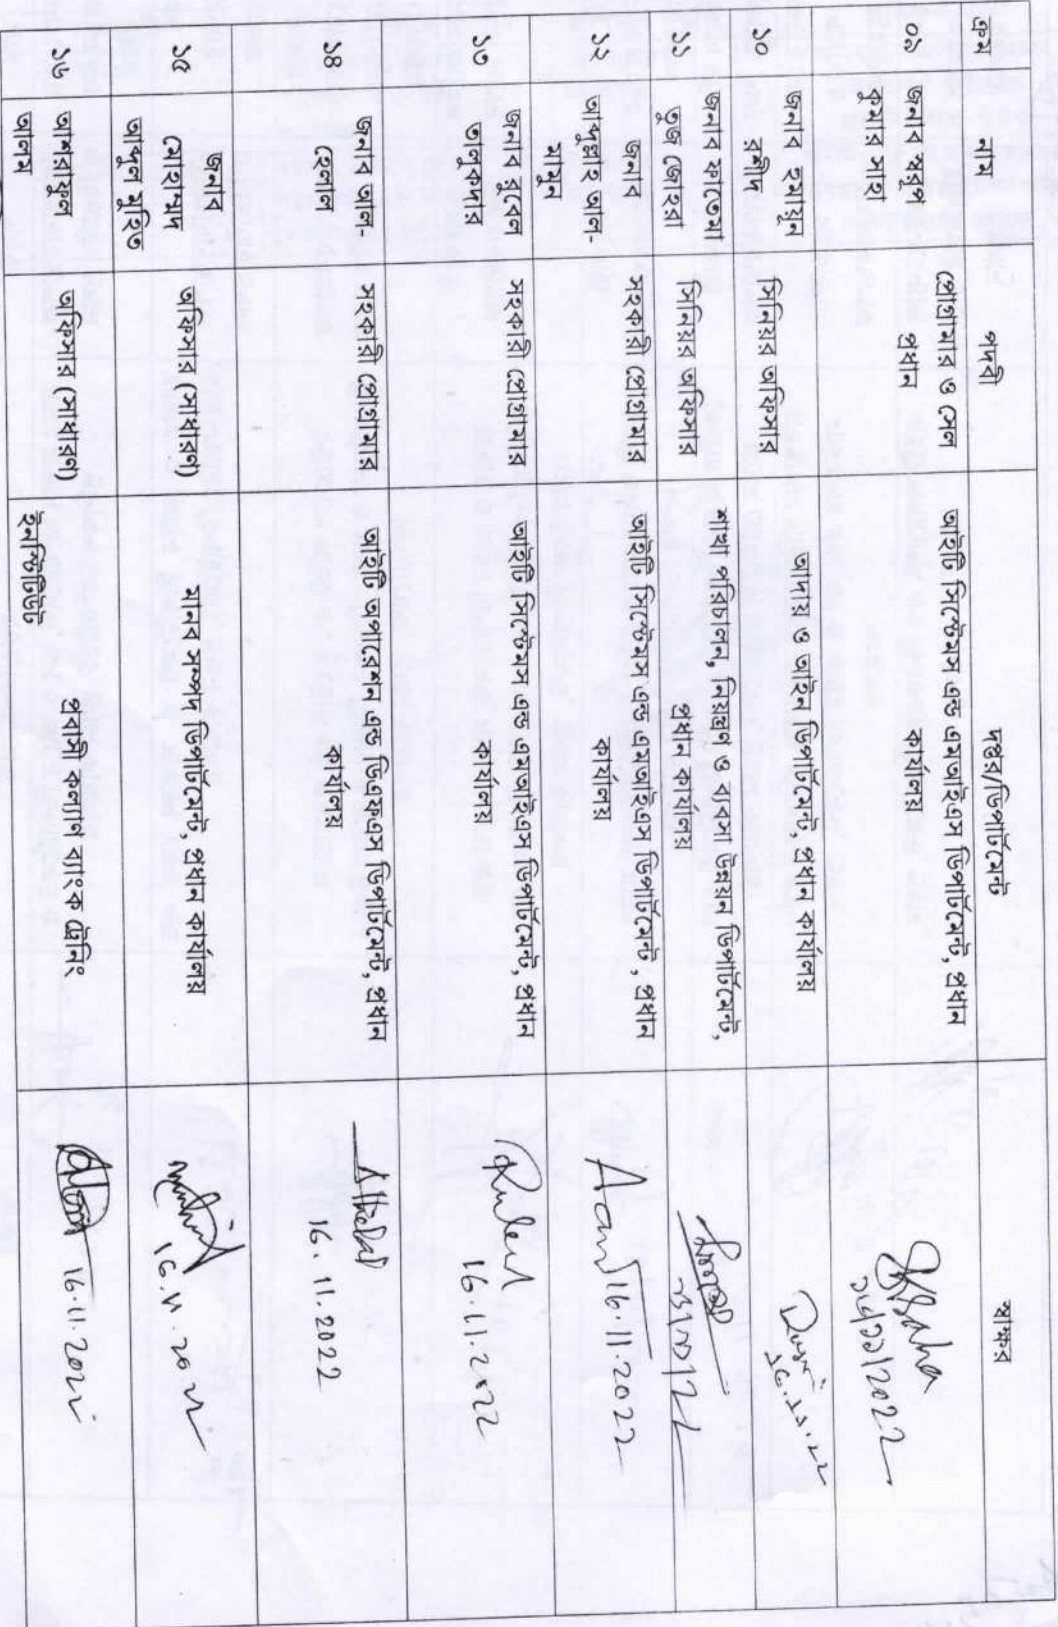 ক্রম নাম পদবী দপ্তর/ডিপার্টমেন্ট স্বাক্ষর
০৯ জনাব স্বরূপ কুমার সাহা প্রোগ্রামার ও সেল প্রধান আইটি সিস্টেমস এন্ড এমআইএস ডিপার্টমেন্ট, প্রধান কার্যালয় Saha
১০ জনাব হুমায়ুন রশীদ সিনিয়র অফিসার আদায় ও আইন ডিপার্টমেন্ট, প্রধান কার্যালয়
১১ জনাব ফাতেমা তুজ জোহরা সিনিয়র অফিসার শাখা পরিচালন, নিয়ন্ত্রণ ও ব্যবসা উন্নয়ন ডিপার্টমেন্ট, প্রধান কার্যালয়
১২ জনাব আব্দুল্লাহ আল-মামুন সহকারী প্রোগ্রামার আইটি সিস্টেমস এন্ড এমআইএস ডিপার্টমেন্ট, প্রধান কার্যালয় 16.11.2022
১৩ জনাব রুবেল তালুকদার সহকারী প্রোগ্রামার আইটি সিস্টেমস এন্ড এমআইএস ডিপার্টমেন্ট, প্রধান কার্যালয় 16.11.2022
১৪ জনাব আল-হেলাল সহকারী প্রোগ্রামার আইটি অপারেশন এন্ড ডিএফএস ডিপার্টমেন্ট, প্রধান কার্যালয় 16.11.2022
১৫ জনাব মোহাম্মদ আব্দুল মুহিত অফিসার (সাধারণ) মানব সম্পদ ডিপার্টমেন্ট, প্রধান কার্যালয় 16.11.2022
১৬ আশরাফুল আলম অফিসার (সাধারণ) প্রবাসী কল্যাণ ব্যাংক ট্রেনিং ইনস্টিটিউট 16.11.2022